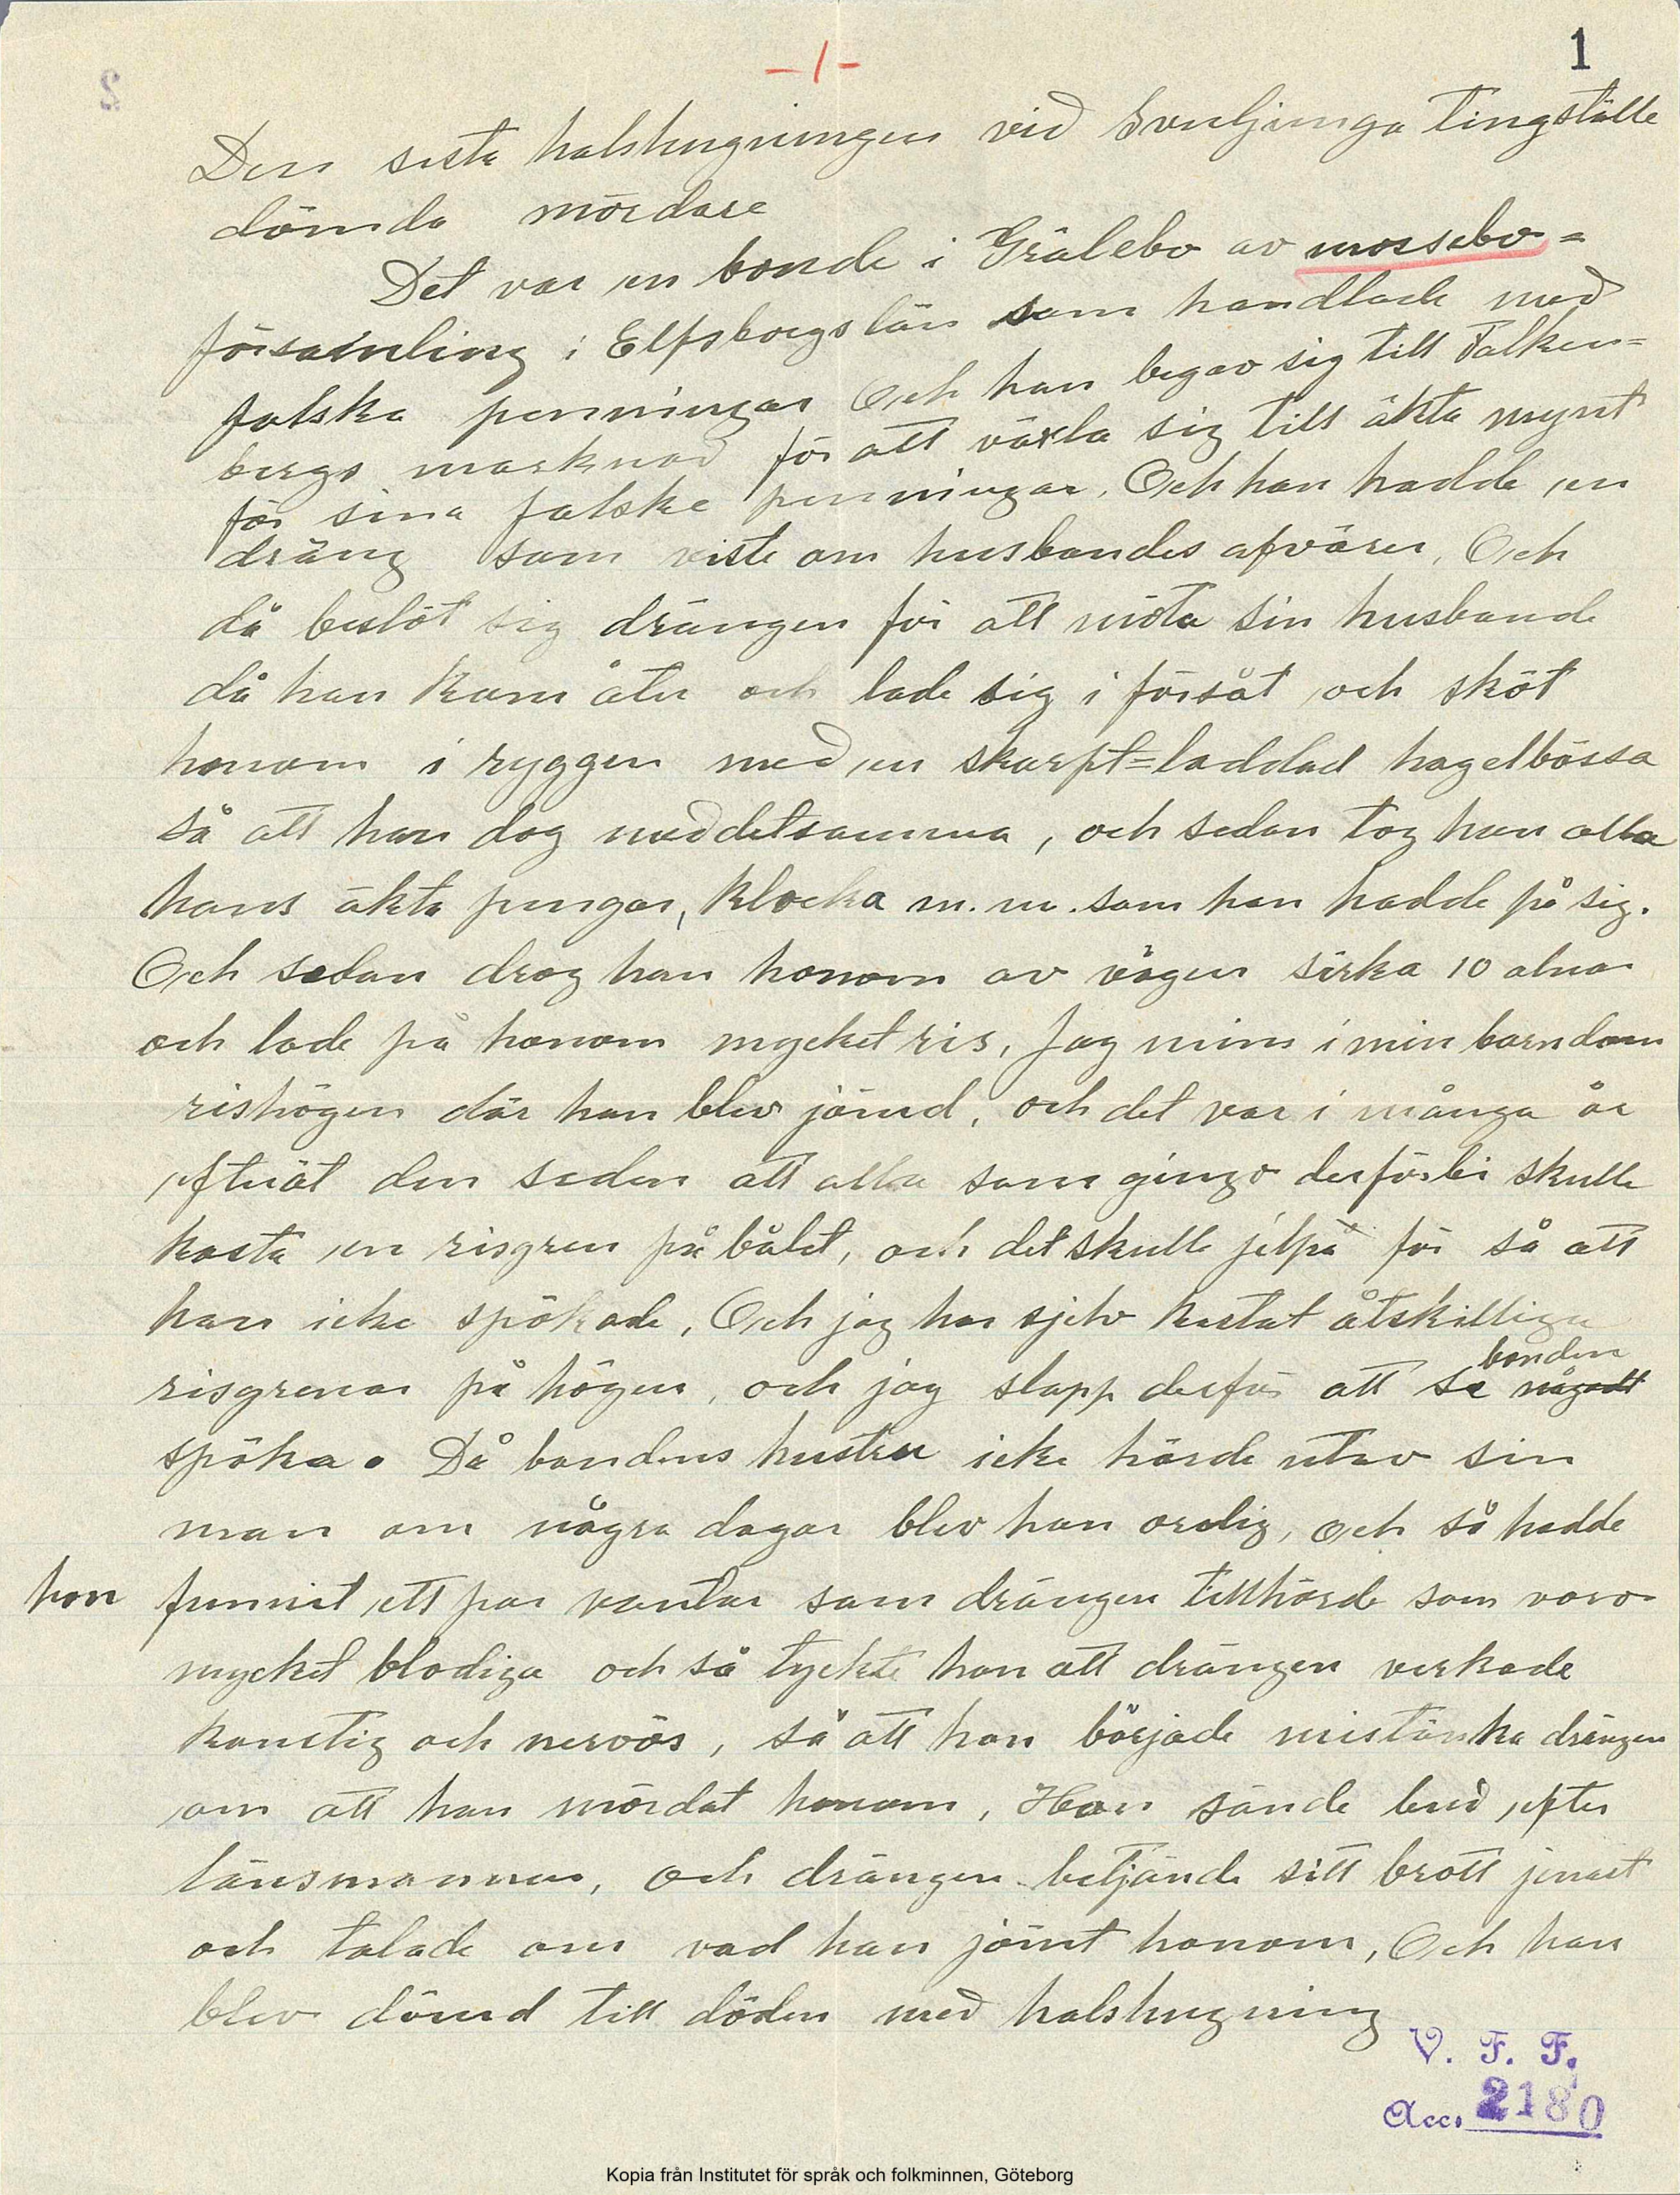 -1-
1
2
Den sista halshugningen vid Svenljunga Tingställe
dömda mördare
Det var en bonde i Grålebo av mossebo=
församling i Elfsborgs län som handlade med
falska penningar Och han begav sig till Falken=
bergs marknad för att växla sig till äkta mynt
för sina falske penningar. Och han hadde en
dräng som viste om husbondes afvärer, Och
då beslöt sig drängen för att möta sin husbonde
då han kom åter och lade sig i försåt och sköt
honom i ryggen med en skarpt=laddad hagelbössa
så att han dog meddetsamma, och sedan tog han alla
hans äkta pengar, klocka m.m. som han hadde på sig.
Och sedan drog han honom av vägen sirka 10 alnar
och lade på honom mycket ris, Jag mins i min barndom
rishögen där han blev jömd, och det var i många år
efteråt den seden att alla som gingo derförbi skulle
kasta en risgren på bålet, och det skulle jelpa för så att
han icke spökade, Och jag har sjelv kastat åtskilliga
risgrenar på högen, och jag slapp derför att se någodt bonden
spöka. Då bondens hustru icke hörde utav sin
man om några dagar blev hon orolig, och så hadde
hon funnit ett par vantar som drängen tillhörde som voro
mycket blodiga och så tyckte hon att drängen verkade
konstig och nervös, så att hon började mistänka drängen
om att han mördat honom, Hon sände bud efter
länsmannen, och drängen betjände sitt brott jenast
och talade om vad han jömt honom, Och han
blev dömd till döden med halshugning
V. F. F.
Acc. 2180
Kopia från Institutet för språk och folkminnen, Göteborg